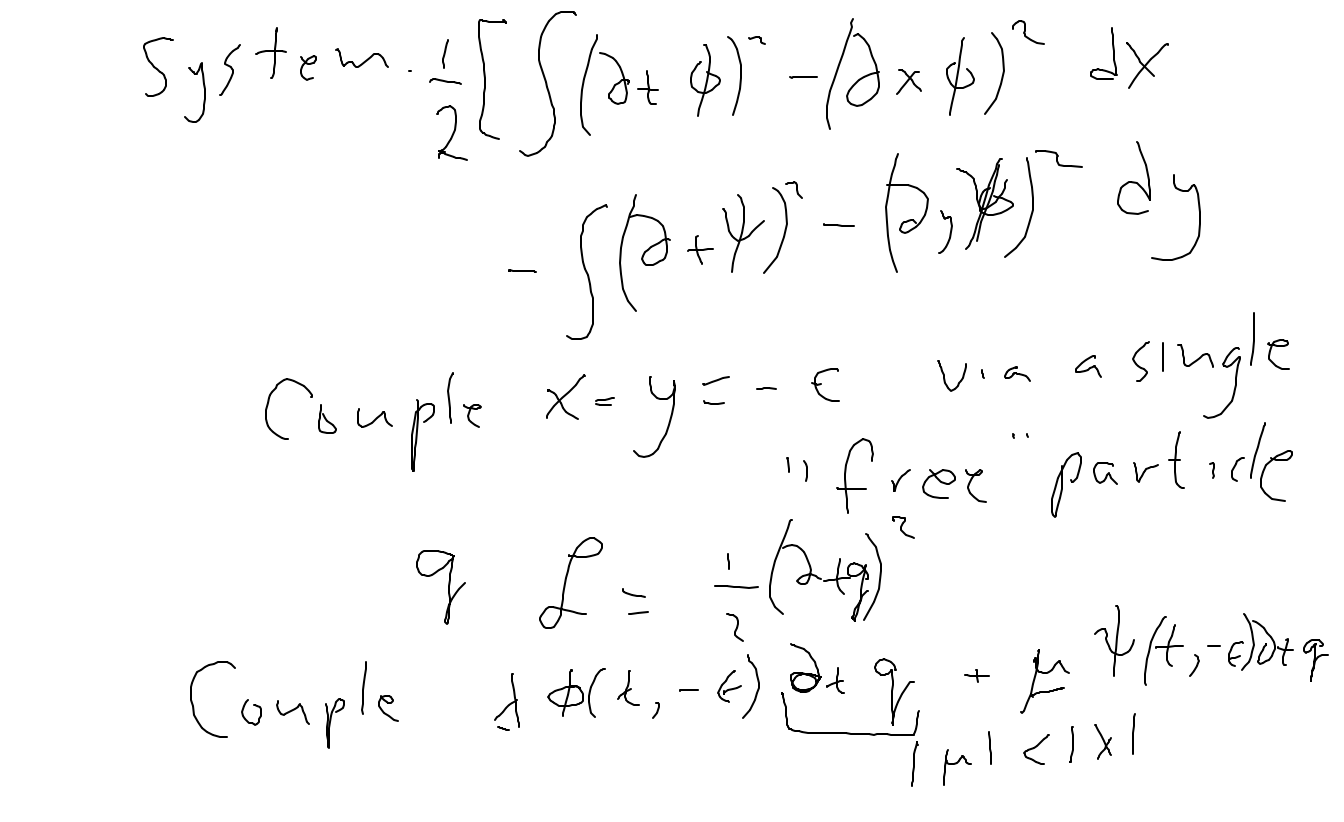 System. 1/2 [ ∫(∂t ϕ)² - (∂x ϕ)² dx
- ∫(∂t ψ)² - (∂y ψ)² dy
Couple x = y = -ϵ via a single
"free" particle
q ℒ = 1/2 (∂t q)²
Couple λ ϕ(t, -ϵ) ∂t q + μ ψ(t, -ϵ)∂t q
|μ| < |λ|